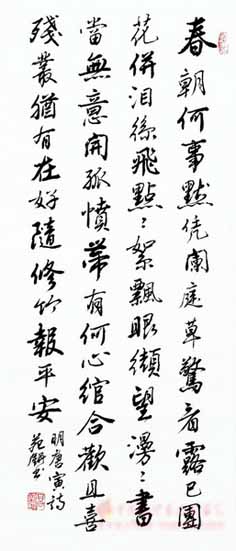 春朝何事默凭闌庭草驚看露已團
花併泪絲飛點〻絮飄眼纈望漫〻書
當無意開孤憤帶有何心綰合歡且喜
殘叢猶有在好隨修竹報平安
明唐寅詩